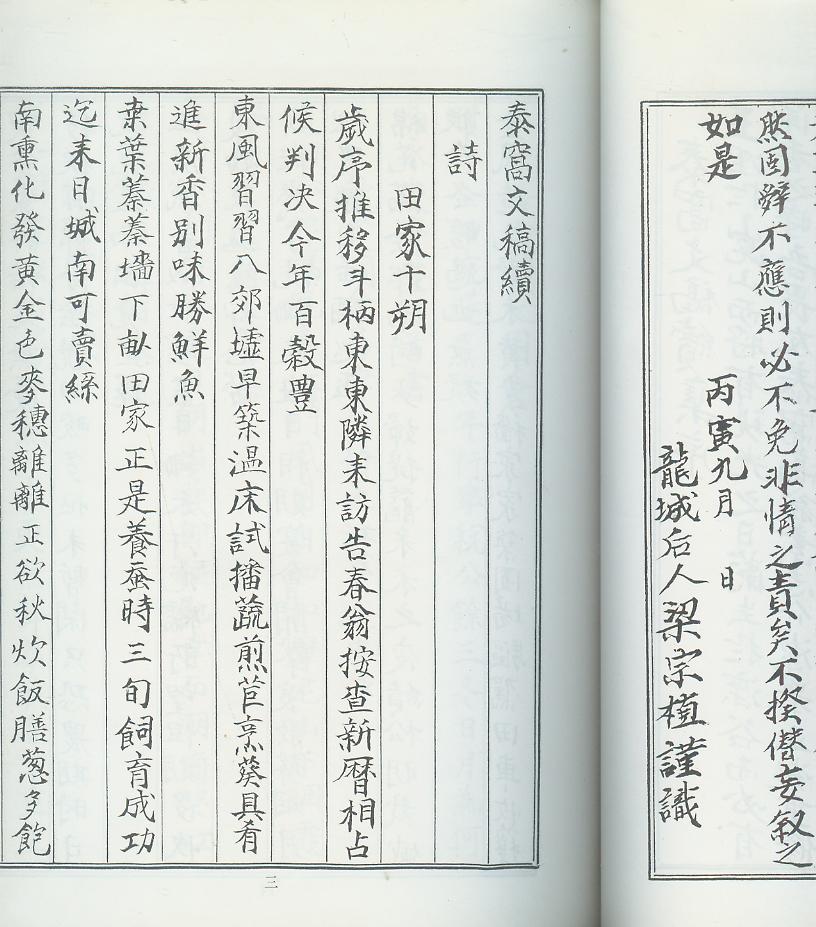 然固辭不應則必不免非情之責矣不揆僭妄敘之
如是
丙寅九月 日
龍城后人梁宗植謹識
泰窩文稿續
詩
田家十朔
歲序推移斗柄東東隣来訪告春翁按查新曆相占
候判决今年百穀豊
東風習習八郊墟早築溫床試播蔬煎苣烹葵具肴
進新香別味勝鮮魚
桒葉蓁蓁墻下畝田家正是養蚕時三旬飼育成功
迄来日城南可賣絲
南熏化發黃金色麥穗離離正欲秋炊飯膳葱多飽
三